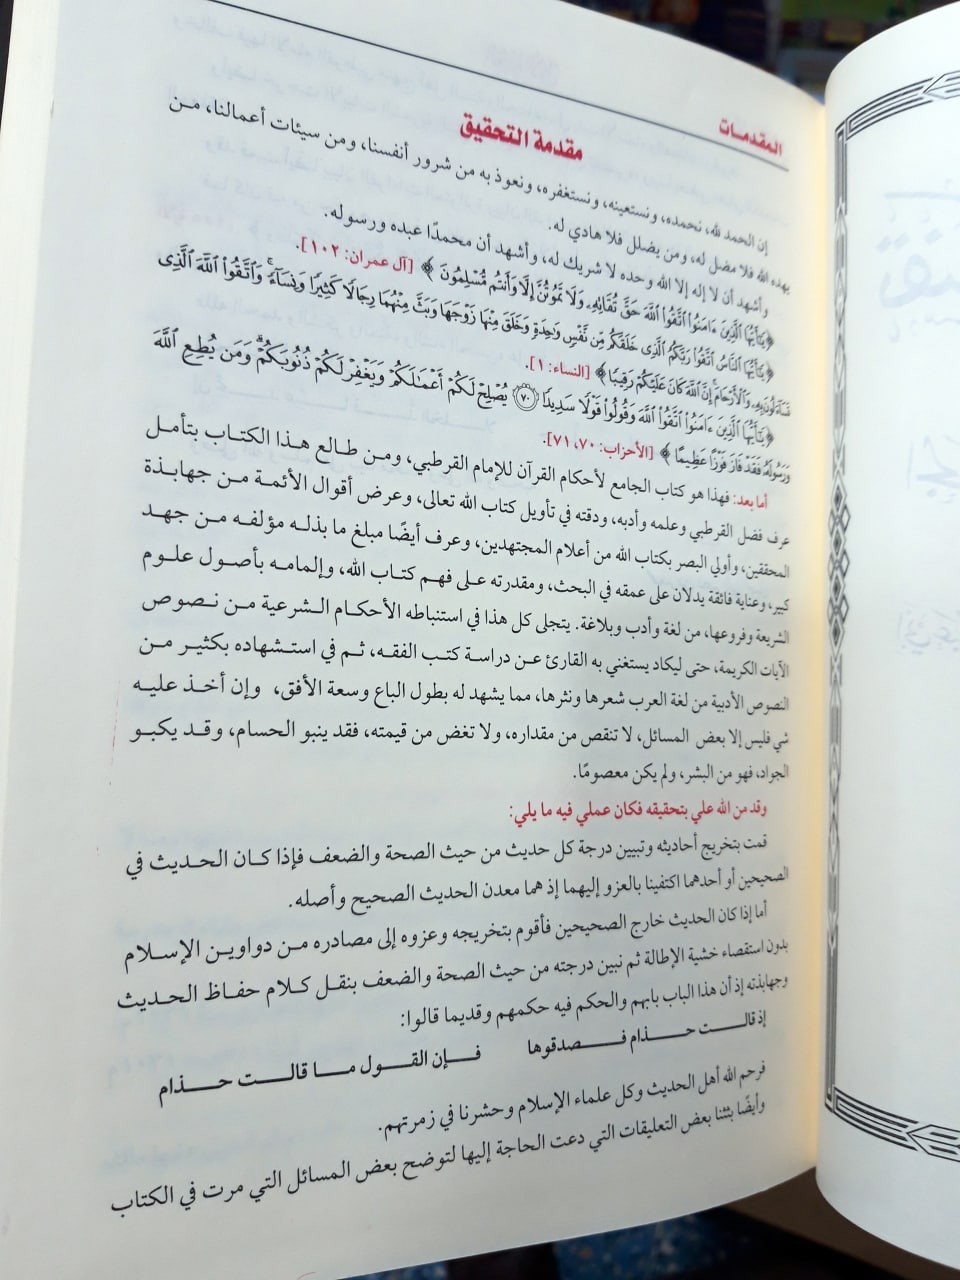 المقدمـات
مقدمة التحقيق
إن الحمد لله، نحمده، ونستعينه، ونستغفره، ونعوذ به من شرور أنفسنا، ومن سيئات أعمالنا، مـن
يهده الله فلا مضل له، ومن يضلل فلا هادي له.
وأشهد أن لا إله إلا الله وحده لا شريك له، وأشهد أن محمدًا عبده ورسوله.
﴿يَٰٓأَيُّهَا ٱلَّذِينَ ءَامَنُوا۟ ٱتَّقُوا۟ ٱللَّهَ حَقَّ تُقَاتِهِۦ وَلَا تَمُوتُنَّ إِلَّا وَأَنتُم مُّسْلِمُونَ﴾ [آل عمران: ١٠٢].
﴿يَٰٓأَيُّهَا ٱلنَّاسُ ٱتَّقُوا۟ رَبَّكُمُ ٱلَّذِى خَلَقَكُم مِّن نَّفْسٍ وَٰحِدَةٍ وَخَلَقَ مِنْهَا زَوْجَهَا وَبَثَّ مِنْهُمَا رِجَالًا كَثِيرًا وَنِسَآءً ۚ وَٱتَّقُوا۟ ٱللَّهَ ٱلَّذِى
تَسَآءَلُونَ بِهِۦ وَٱلْأَرْحَامَ ۚ إِنَّ ٱللَّهَ كَانَ عَلَيْكُمْ رَقِيبًا﴾ [النساء: ١].
﴿يَٰٓأَيُّهَا ٱلَّذِينَ ءَامَنُوا۟ ٱتَّقُوا۟ ٱللَّهَ وَقُولُوا۟ قَوْلًا سَدِيدًا ٧٠ يُصْلِحْ لَكُمْ أَعْمَٰلَكُمْ وَيَغْفِرْ لَكُمْ ذُنُوبَكُمْ ۗ وَمَن يُطِعِ ٱللَّهَ
وَرَسُولَهُۥ فَقَدْ فَازَ فَوْزًا عَظِيمًا﴾ [الأحزاب: ٧٠، ٧١].
أما بعد: فهذا هو كتاب الجامع لأحكام القرآن للإمام القرطبي، ومـن طـالع هـذا الكتـاب بتأمـل
عرف فضل القرطبي وعلمه وأدبه، ودقته في تأويل كتاب الله تعالى، وعرض أقوال الأئمـة مـن جهابـذة
المحققين، وأولي البصر بكتاب الله من أعلام المجتهدين، وعرف أيضًا مبلغ ما بذلـه مؤلفـه مـن جهـد
كبير، وعناية فائقة يدلان على عمقه في البحث، ومقدرته علـى فهـم كتـاب الله، وإلمامـه بأصـول علـوم
الشريعة وفروعها، من لغة وأدب وبلاغة. يتجلى كل هذا في استنباطه الأحكام الـشرعية مـن نـصوص
الآيات الكريمة، حتى ليكاد يستغني به القارئ عـن دراسة كتـب الفقـه، ثـم في اسـتـشهاده بكثيـر مـن
النصوص الأدبية من لغة العرب شعرها ونثرها، مما يشهد له بطول الباع وسعة الأفق، وإن أخـذ عليـه
شي فليس إلا بعض المسائل، لا تنقص من مقداره، ولا تغض من قيمته، فقد ينبو الحسام، وقـد يكبـو
الجواد، فهو من البشر، ولم يكن معصومًا.
وقد من الله علي بتحقيقه فكان عملي فيه ما يلي:
قمت بتخريج أحاديثه وتبيين درجة كل حديث من حيث الصحة والضعف فإذا كـان الحـديث في
الصحيحين أو أحدهما اكتفينا بالعزو إليهما إذ هما معدن الحديث الصحيح وأصله.
أما إذا كان الحديث خارج الصحيحين فأقوم بتخريجه وعزوه إلى مصادره مـن دواويـن الإسـلام
بدون استقصاء خشية الإطالة ثم نبين درجته من حيث الصحة والضعف بنقـل كـلام حفـاظ الحـديث
وجهابذته إذ أن هذا الباب بابهم والحكم فيه حكمهم وقديما قالوا:
إذ قالـــت حـــذام فـــصدقوها فـــإن القـــول مـــا قالـــت حـــذام
فرحم الله أهل الحديث وكل علماء الإسلام وحشرنا في زمرتهم.
وأيضًا بثثنا بعض التعليقات التي دعت الحاجة إليها لتوضح بعض المسائل التي مرت في الكتاب